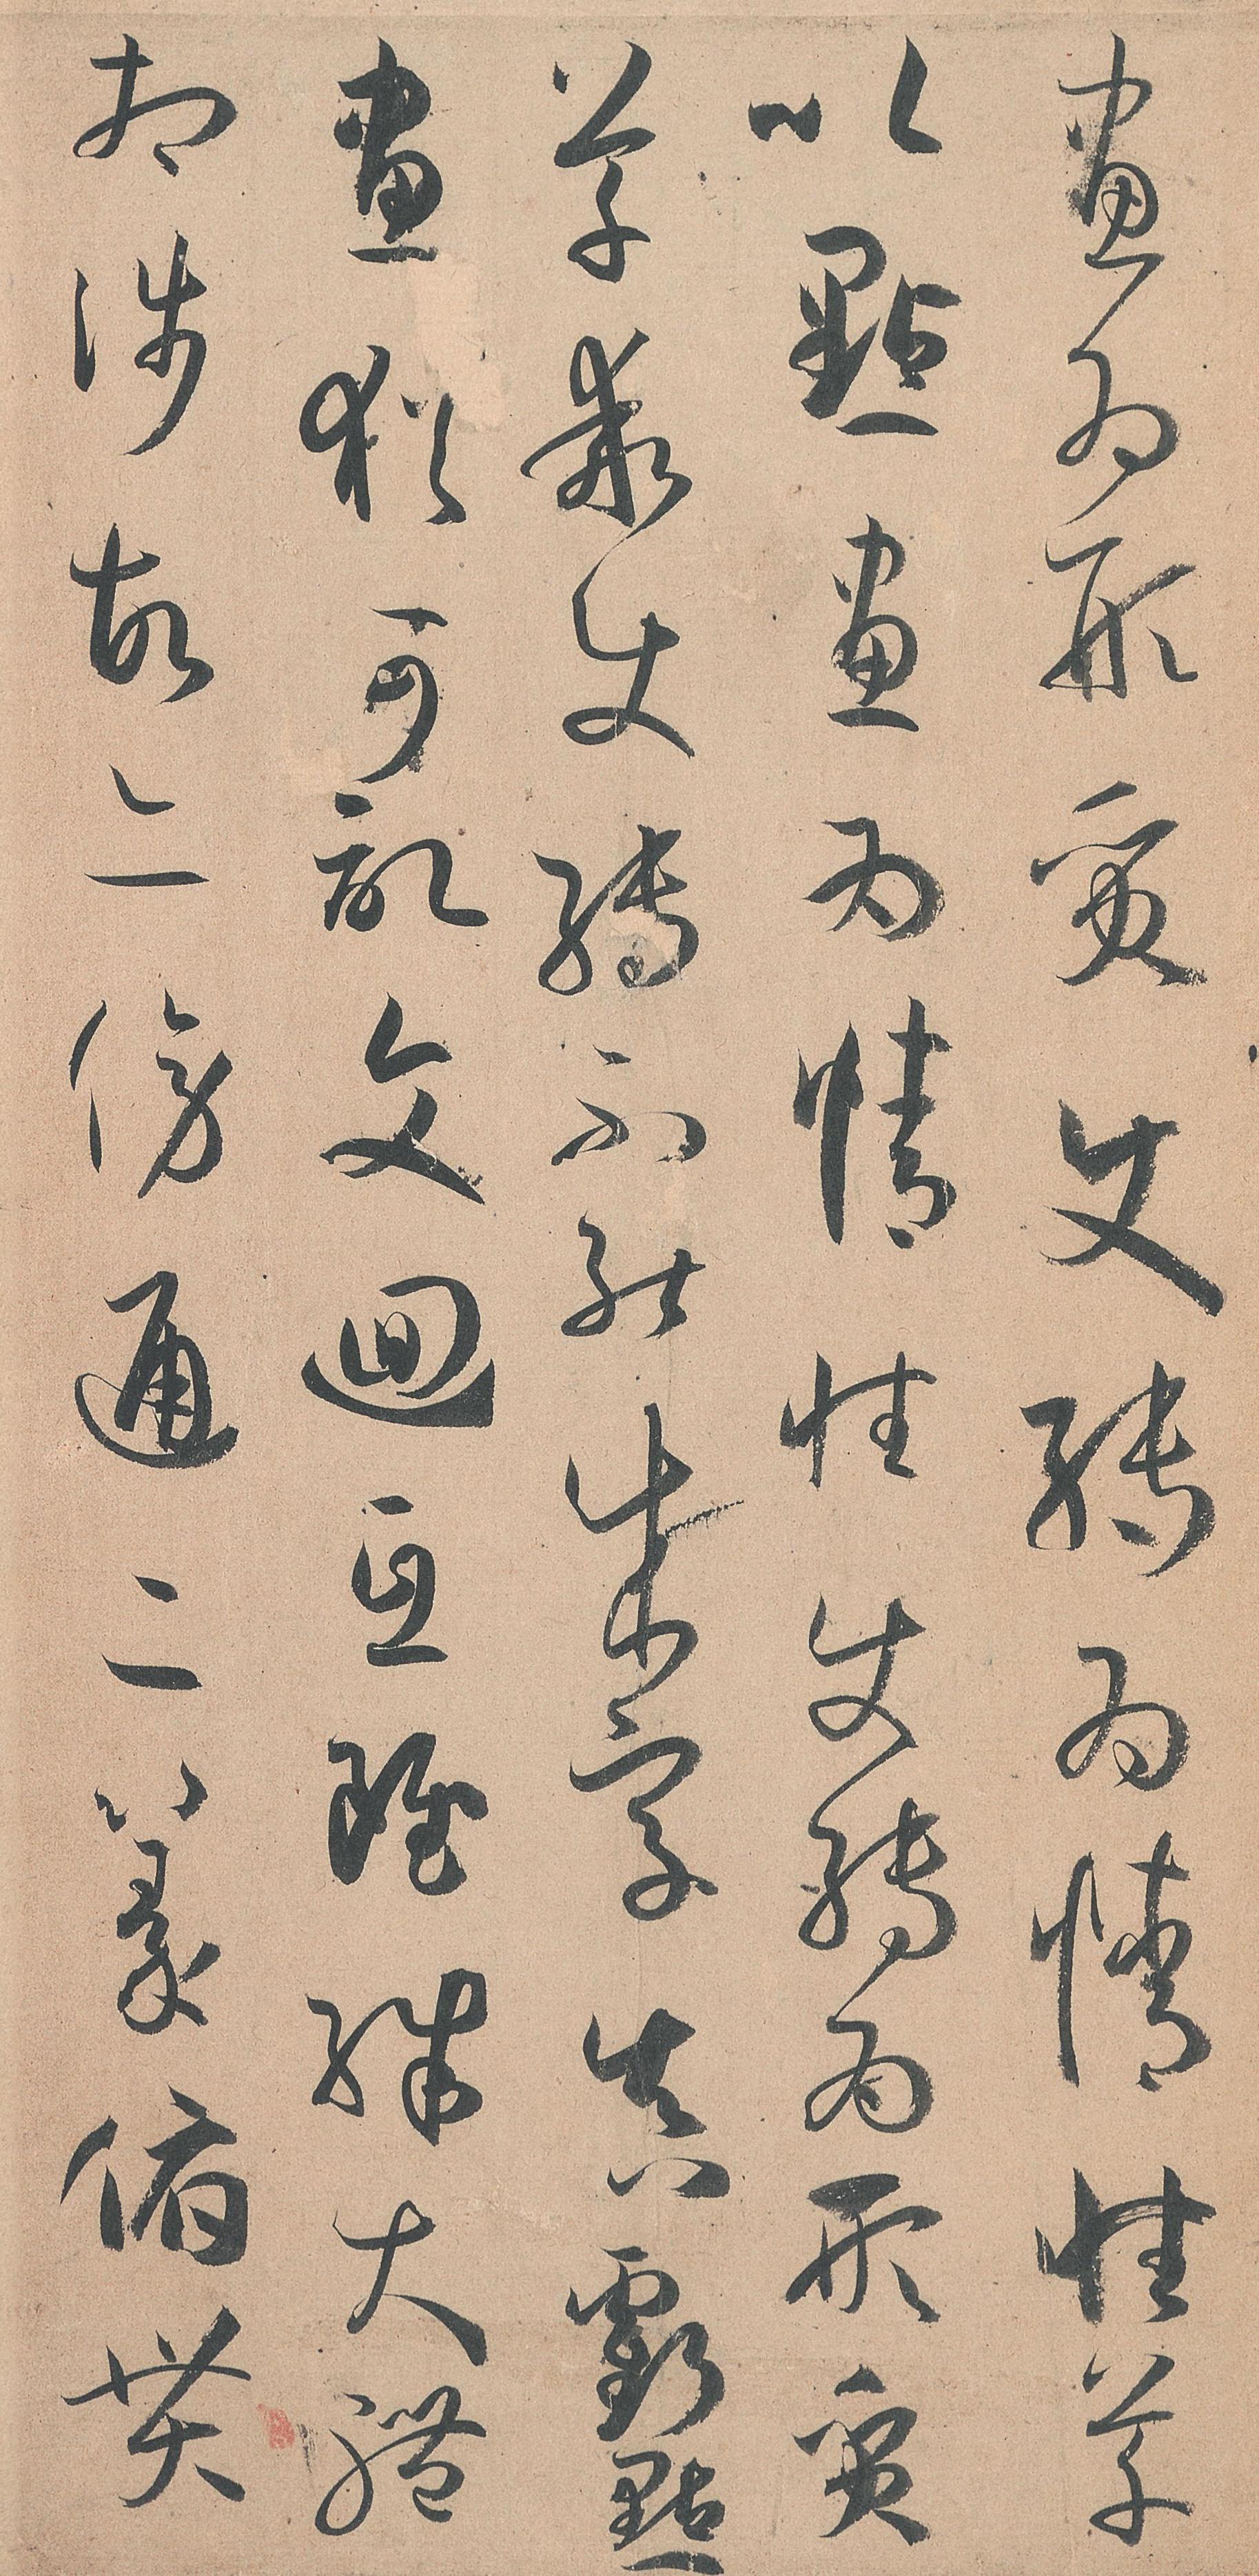 畫為形質使轉為情性草
以點畫為情性使轉為形質
草乖使轉不能成字真虧點
畫猶可記文迴互雖殊大體
相涉故亦傍通二篆俯貫